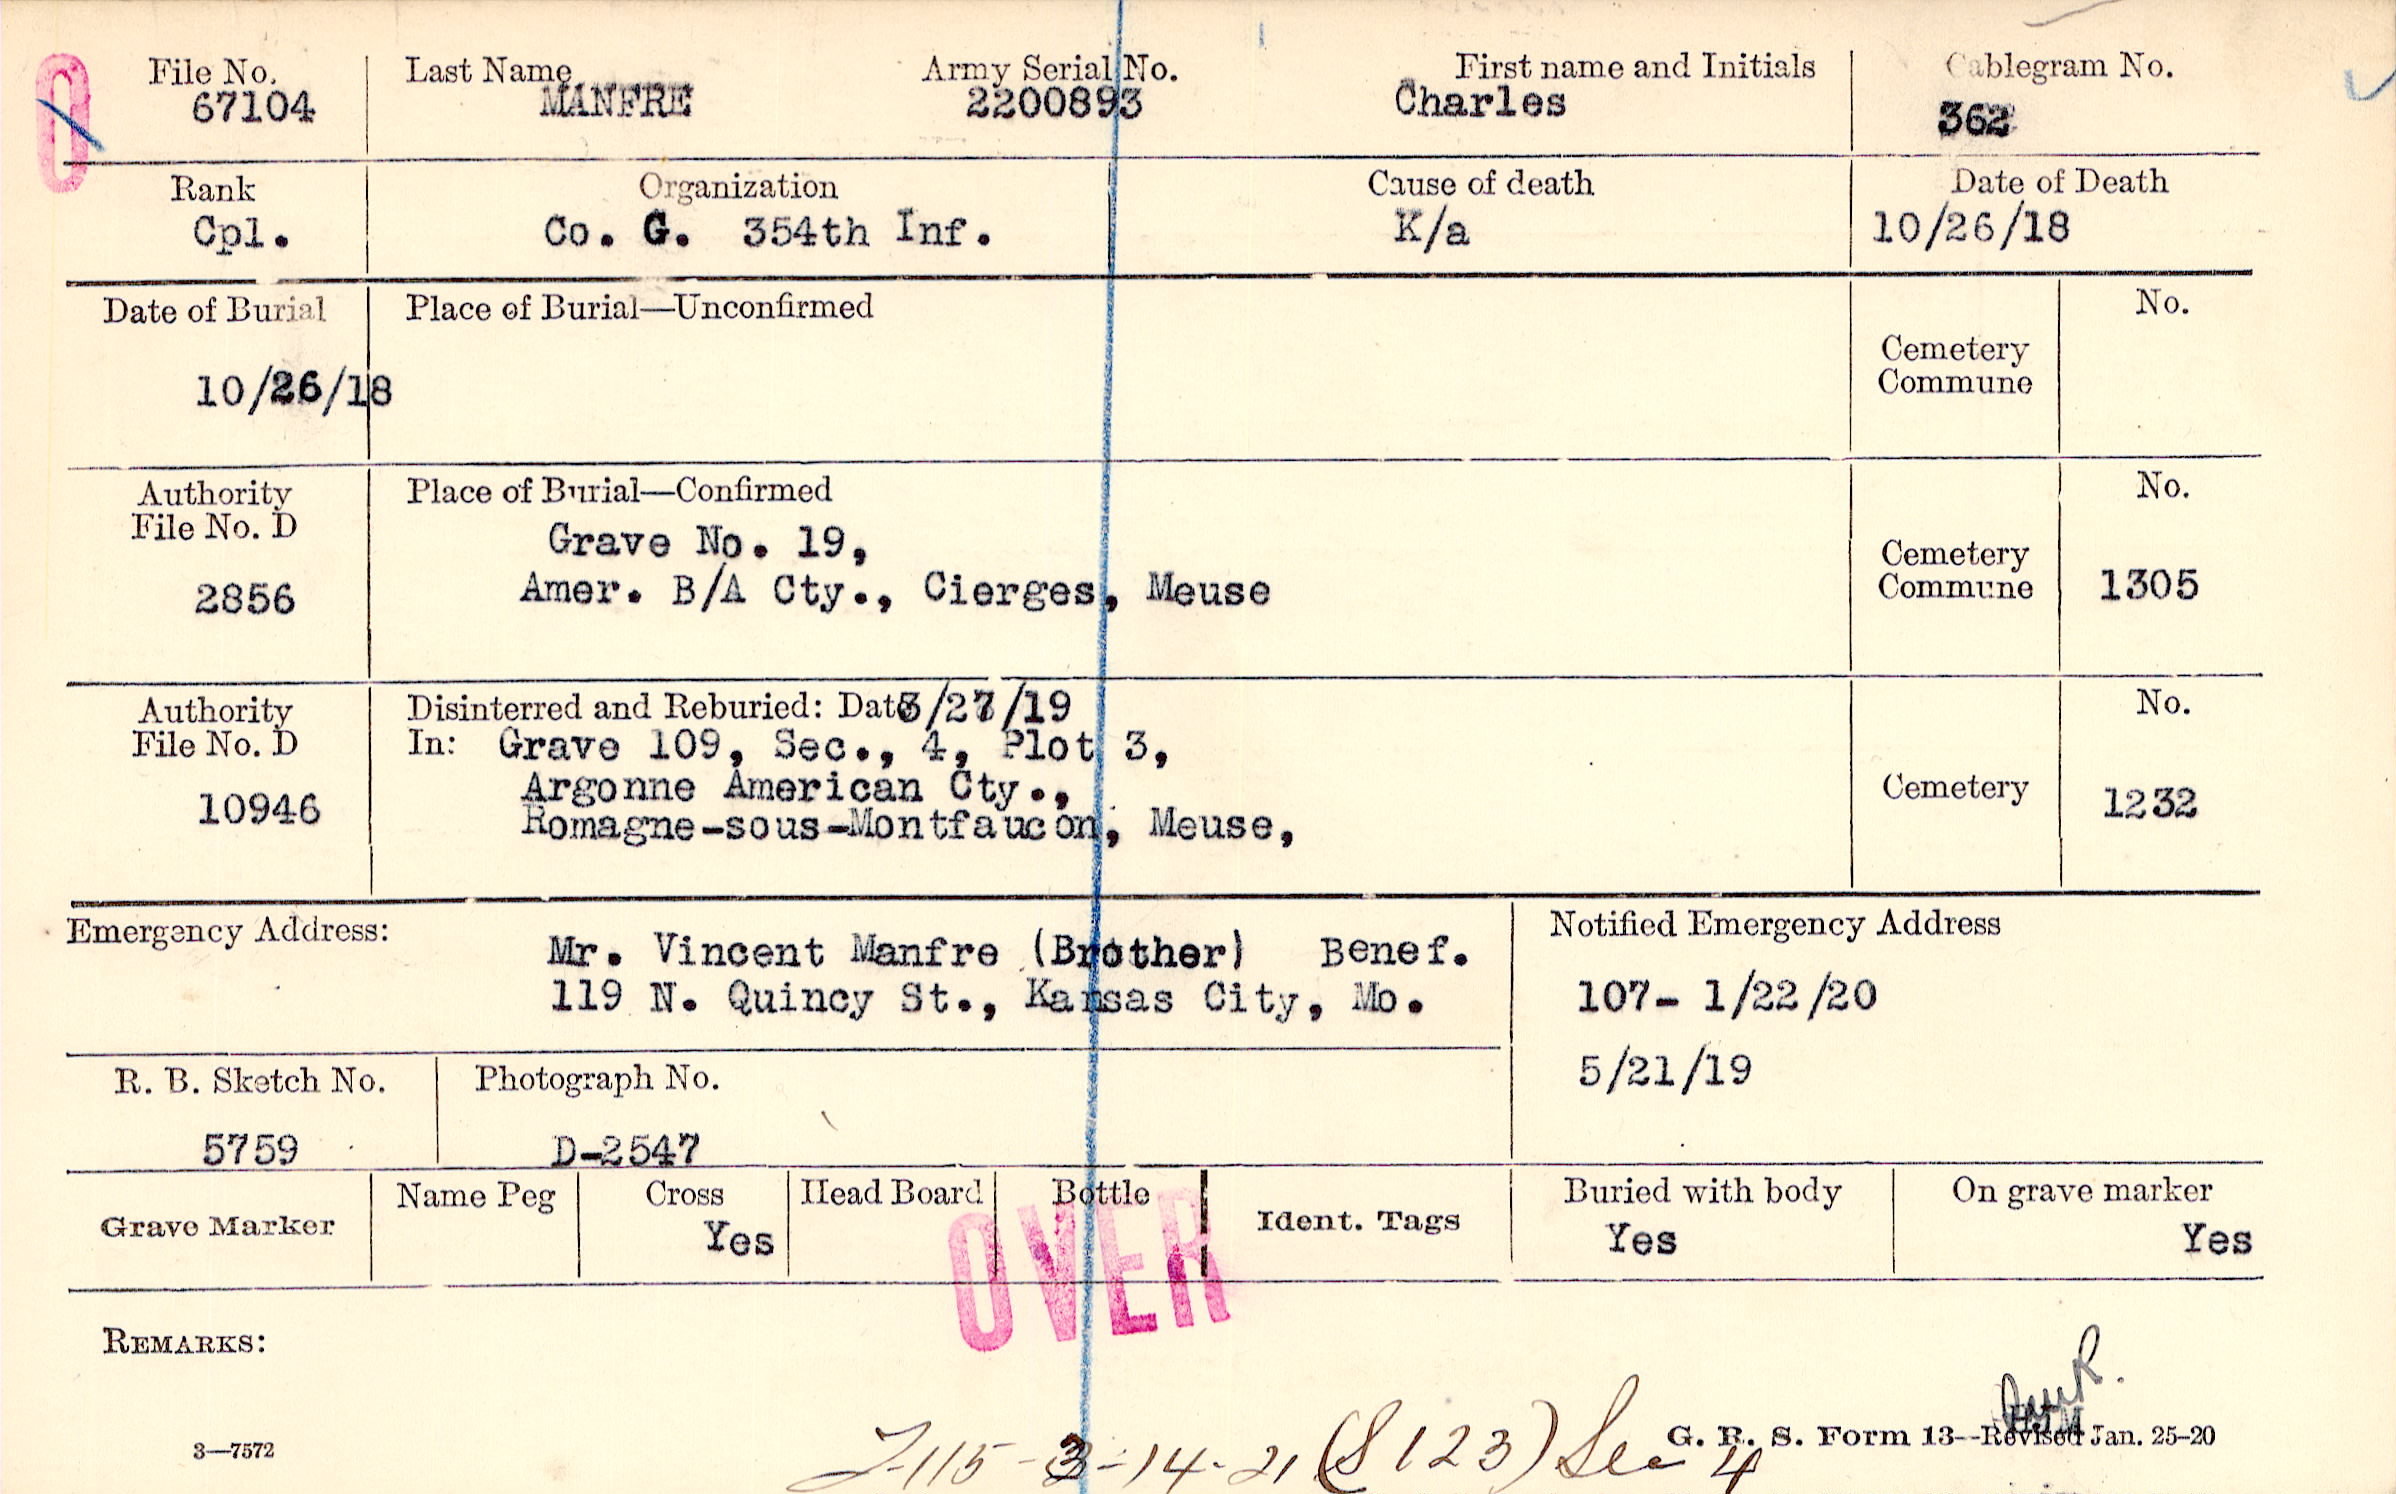 O
File No. Last Name Army Serial No. First name and Initials Cablegram No.
67104 MANFRE 2200893 Charles 362
Rank Organization Cause of death Date of Death
Cpl. Co. G. 354th Inf. K/a 10/26/18
Date of Burial Place of Burial—Unconfirmed No.
Cemetery
Commune
10/26/18
Authority Place of Burial—Confirmed No.
File No. D
Grave No. 19,
Cemetery
2856 Amer. B/A Cty., Cierges, Meuse Commune 1305
Authority Disinterred and Reburied: Date /19 No.
File No. D In: Grave 109, Sec., 4, Plot 3,
Argonne American Cty., Cemetery
10946 Romagne-sous-Montfaucon, Meuse, 1232
Emergency Address: Notified Emergency Address
Mr. Vincent Manfre (Brother) Benef.
119 N. Quincy St., Kansas City, Mo. 107- 1/22/20
5/21/19
R. B. Sketch No. Photograph No.
5759 D-2547
Grave Marker Name Peg Cross Head Board Bottle Ident. Tags Buried with body On grave marker
Yes Yes Yes
OVER
REMARKS:
3—7572 G. R. S. Form 13--Revised Jan. 25-20
115-3-14-21 (S123) Sec 4